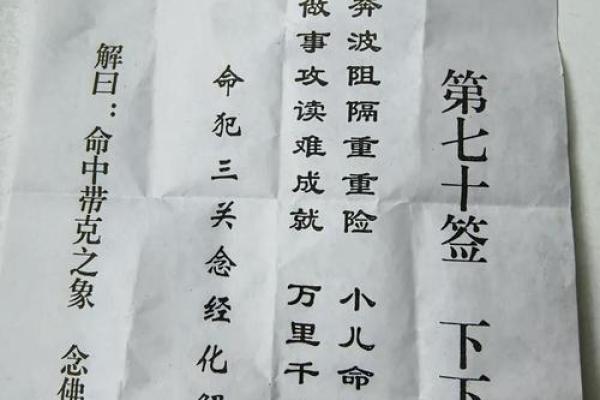 第七十签 下下
奔波阻隔重重险 小儿命
做事攻读难成就 万里千
命犯三关念经化解
解曰：命中带克之象 念佛